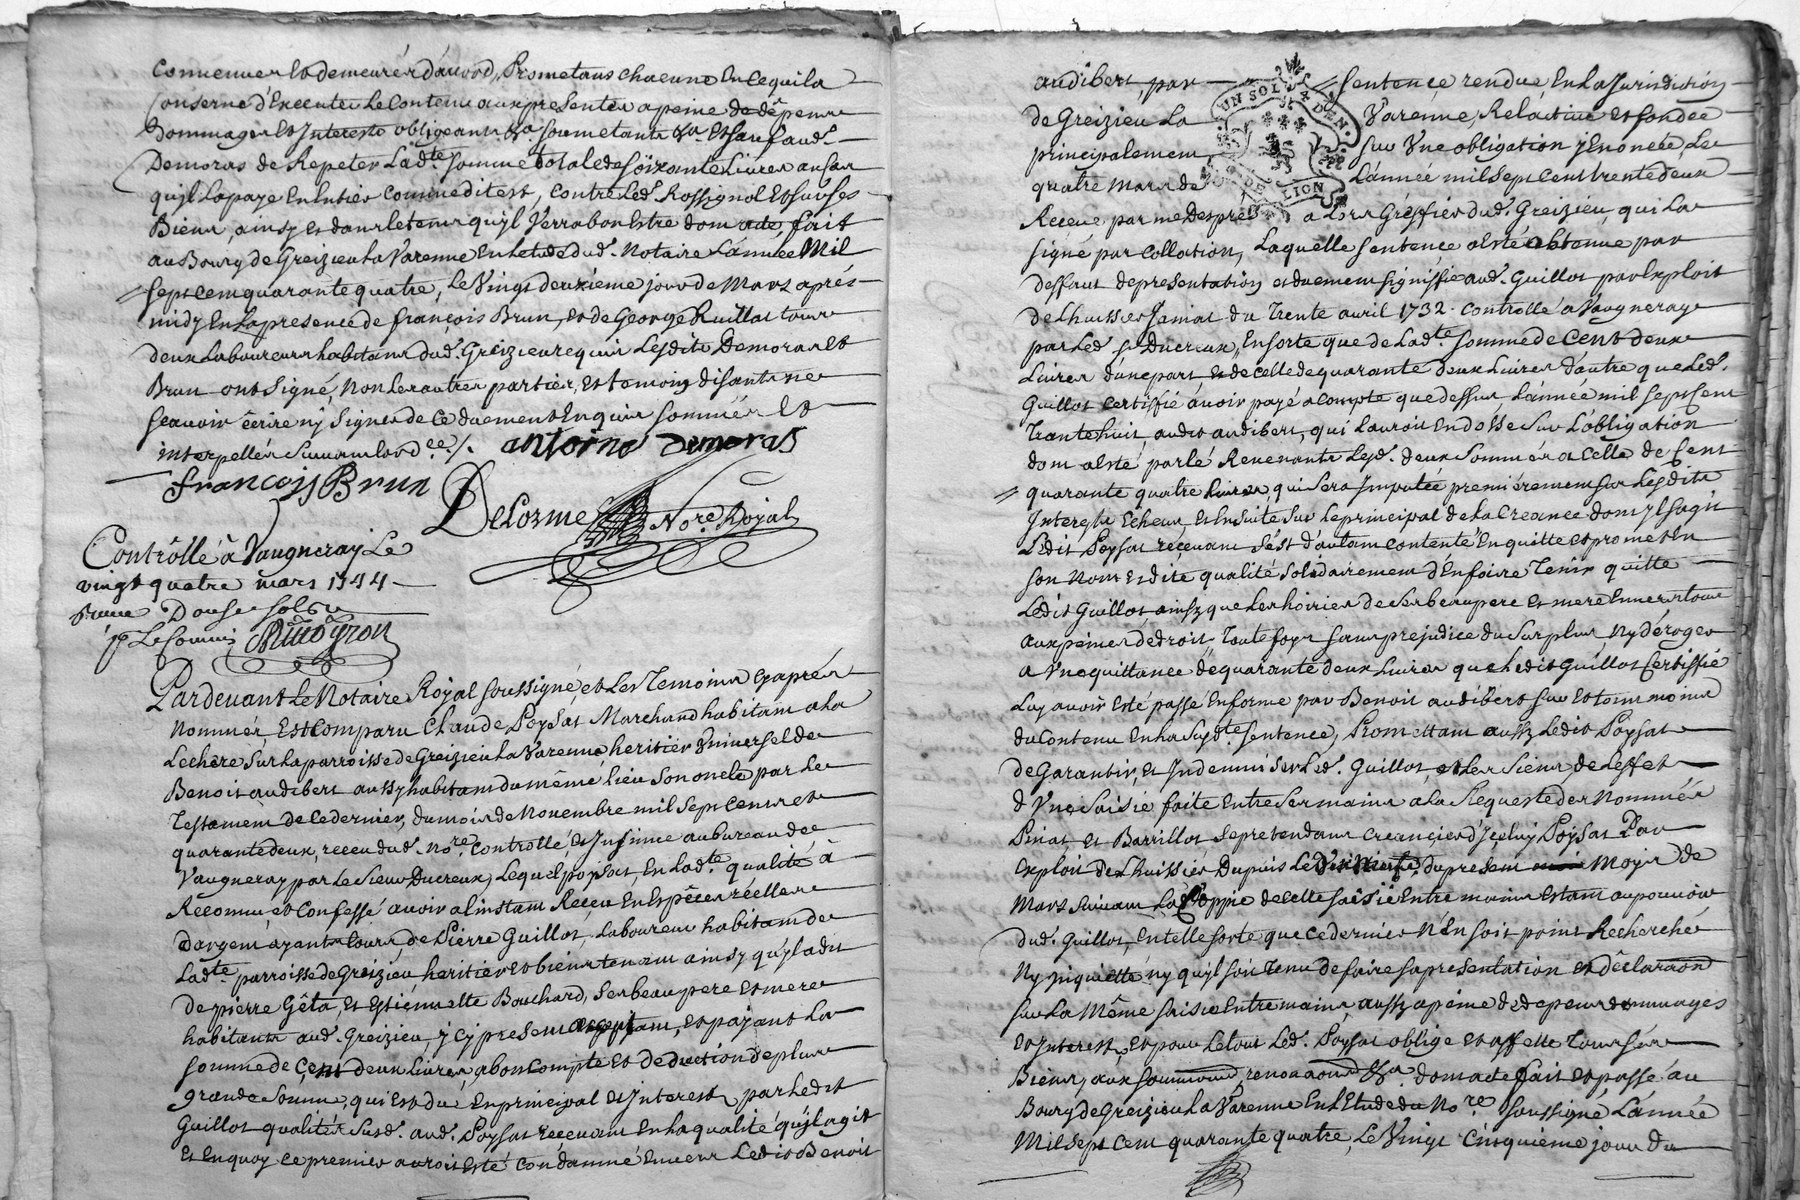 convenuer et demeurér d'accord, Prometans chacune En ce quila
Conserne d'Executer Le Contenu aux presenter a peine de dêpens
dommager Et Interests obligeants &a soumetants &a. Et sauf aud.
Demoras de Repeter Lad.te somme totale de soixante Livres au cas
quÿl La paye En Entier comme dit est, contre Led. Rossignol Et sur ses
Biens, ainsy et dans le tems quÿl Verra bon Estre dom acte, fait
au Bourg de Greizieu La Varenne En Letude dud. Notaire L'année Mil
sept cem quarante quatre, Le Vingt deuxième jour de Mars aprés
midy En La presence de françois Brun, et de George Ruillat tour
deux Laboureurs habitans dud. Greizieu requis Lesdits Demoras Et
Brun ont signé, Non Les autres parties, Et temoins disants ne
scavoir écrire ny signer de ce duement Enquis sommés Et
interpellés suivam Lord.ce /.
antoine Demoras
françois Brun
DeLorme No.re Royal
Contrôllé â Vaugneray Le
vingt quatre mars 1744
Reçu Douse sols
p.r Le Commis
Pardevant Le Notaire Royal soussigné, et Les Temoins cy aprés
Nommér Est Comparu Claude Poysat Marchand habitam a La
Lechere sur La parroisse de Greizieu La Varenne heritier Vniversel de
Benoit audibert aussy habitam du même Lieu son oncle par Le
Testament de ce dernier, du mois de Novembre mil sept Cent et
quarante deux, receu dud. No.re Controllé, et Insinué au bureau de
Vaugneray par Le Sieur Ducreux, Lequel poysat En Lad.te qualité â
Reconnu et Confessé avoir a linstam Receu En Espéces réelles
d'argent ayant Cours de Pierre Guillot, Laboureur habitam de
Lad.te parroisse de Greizieu heritier et bien tenam ainsy quÿl a dit
de pierre Gêta, et Estiennette Bouchard, ses beau pere et mere
habitants aud. Greizieu, ÿ Cy present acceptam, et payant La
somme de Cent deux Livres, a bon compte et deduction de plus
grande somme, qui Est due En principal et Interests par Ledit
Guillot qualités susd. aud. Poysat recevam En La qualité quÿl agit
Et En quoy ce premier auroit Esté Condamné Envers Ledit Benoit
audibert, par sentence rendue En La Jurisdiction
de Greizieu La Varenne, Relative et fondée
principalement sur Vne obligation ÿ Enoncée, Le
quatre Mars de L'année mil sept cent trente deux
UN SOL
DEN
DE LION
Receue par me Despré a Lors Greffier dud. Greizieu, qui La
signé par Collation, Laquelle sentence a Esté obtenue par
deffaut de presentation, et duement signiffié aud. Guillot par Exploit
de L'huissier Jamat du Trente avril 1732. Controllé a Vaugneray
par Led. s.r Ducreux, En sorte que de Lad.te somme de Cent deux
Livres d'une part, et de celle de quarante deux Livres d'autre que Led.
Guillot Certiffié avoir payé a compte que dessus L'année mil sept Cent
Trante huit, audit audibert, qui L'auroit Endossé sur L'obligation
dom a Esté parlé Revenants Lesd. deux sommes a celle de Cent
quarante quatre Livres, qui sera Imputée premiérement sur Lesdits
Interests Echeus, et Ensuite sur Le principal de La Creance dom ÿl sagit
Ledit Poysat recevant s'est d'autam contenté En quitte et promet En
son Nom et dite qualité solidairement d'En faire Tenir quitte
Ledit Guillot, ainsy que Les hoiries de ses beau pere et mere Envers tous
aux peines de droit, Toute foys sans prejudice du surplus, Ny déroger
a Vne quittance de quarante deux Livres que Ledit Guillot Certiffié
Luy avoir Esté passé En forme par Benoit audibert sur et tom moins
du Contenu En La susd.te sentence, Promettam aussy Ledit Poysat
de Garantir, et Indemniser Led. Guillot, et Les siens de L'effet
d'Vne saisie faite Entre ses mains a La Requeste des Nommés
Pinat et Barrillot se pretendans creanciers d'ÿceluy Poysat Par
Exploit de L'huissier Dupuis Le du present Moys de
Mars suivam La Coppie de cette saisie Entre mains Estam au pouvoir
dud. Guillot, En telle sorte que ce dernier N'En soit point Recherché
Ny Inquietté, ny quÿl soit Tenu de faire sa presentation et déclaraõn
sur La Même saisie Entre mains, aussy a peine de depens dommages
et Interests, et pour Le tout Led. Poysat oblige et affette Tous ses
Biens, aux soumiõns, renonçaõns &a. dom acte fait et passé au
Bourg de Greizieu La Varenne En L'Etude du No.re soussigné L'année
Mil sept Cent quarante quatre, Le Vingt Cinquiéme jour du